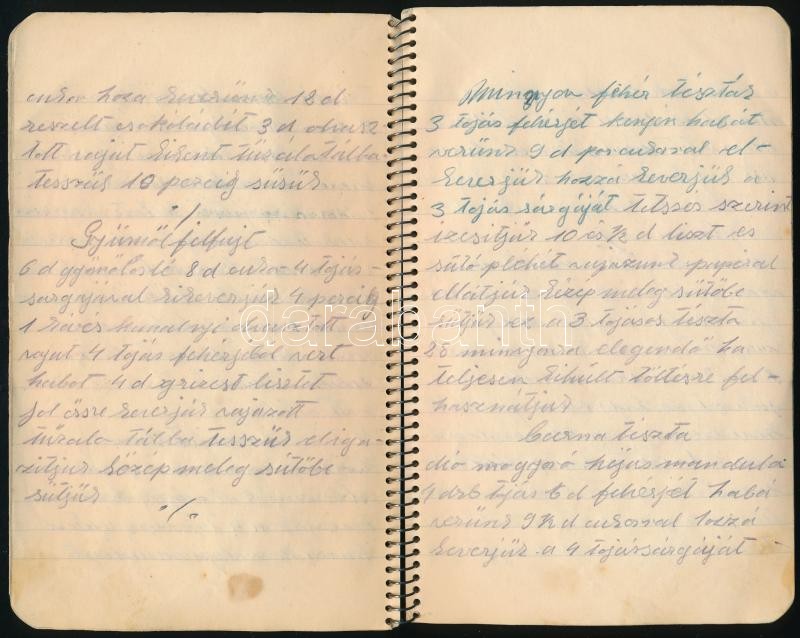 cukor hoza keverünk 12 d
reszelt csokoládét 3 d olvasz
tott vajat kikent tüzálotálba
tesszük 10 percig süsük
./.
Gyümölfelfujt
6 d gyömölcslé 8 d cukor 4 tojás-
sárgájával kikeverjük 4 percig
1 kavés kanalnyi olvasztott
vajat 4 tojás fehérjéböl vert
habot 4 d grizest lisztet
jol össze keverjük vajazott
tüzalo tálba tesszük eliga-
zitjuk közép meleg sütőbe
sütjük
./.
Minyjon fehér tésztás
3 tojás fehérjét kemjén habát
verünk 9 d porcukoral el-
keverjük hozzá keverjük a
3 tojás sárgáját tetsses szerint
izesitjük 10 és ½ d liszt és
sütö pléhet vajazunk papiral
ellátjuk közép meleg sütőbe
sütjük ez a 3 tojásos teszta
25 minyonra elegendő ha
teljesen kihült töltésre fel-
használjuk
barna tészta
dió mogyoró héjas mandula
4 drb tojás 6 d fehérjét habá
verünk 9 ½ d cukorral hozzá
keverjük a 4 tojássárgáját
darabanth